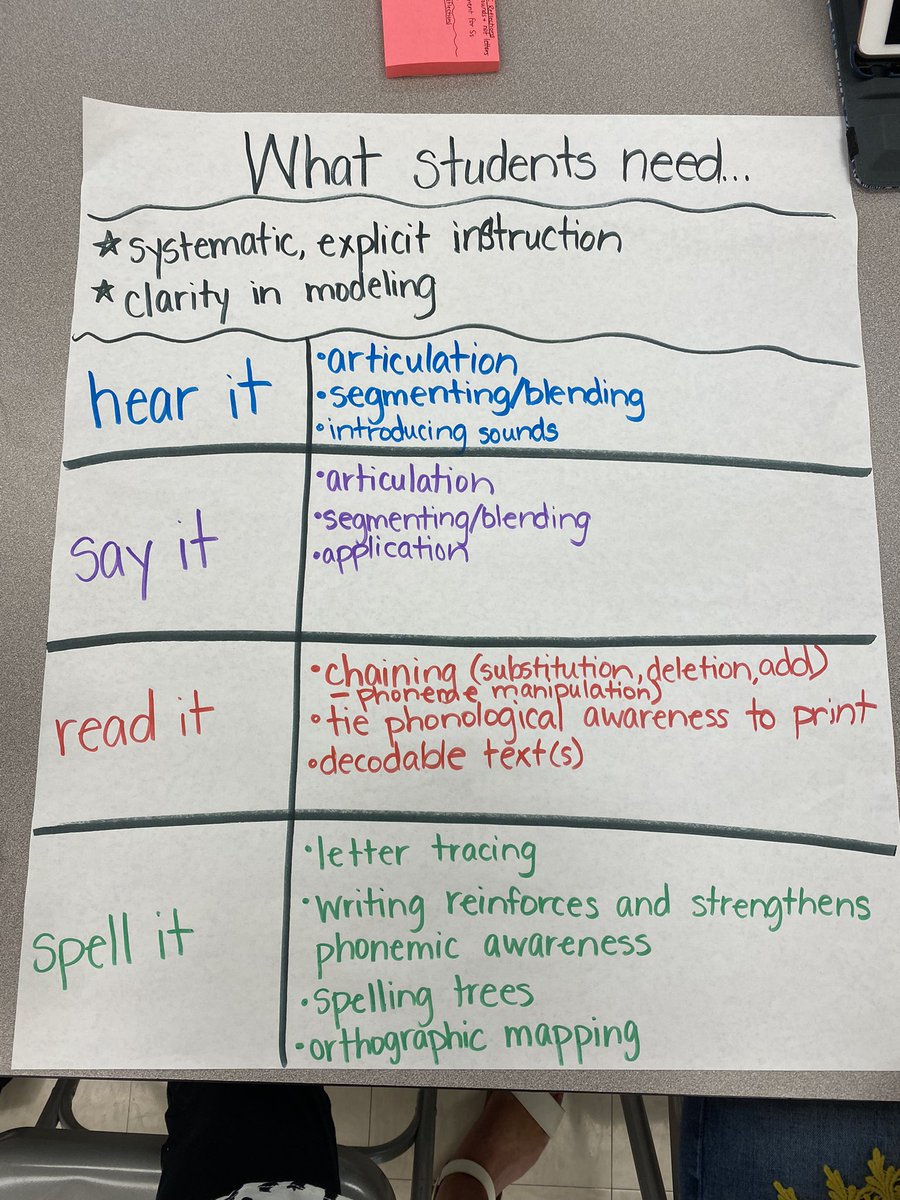 ounds + not letters
ment for Ss
What students need...
☆ systematic, explicit instruction
☆ clarity in modeling
hear it
•articulation
•segmenting/blending
•introducing sounds
say it
•articulation
•segmenting/blending
•application
read it
•chaining (substitution, deletion, add)
– phoneme manipulation)
•tie phonological awareness to print
•decodable text(s)
spell it
•letter tracing
•writing reinforces and strengthens
phonemic awareness
•spelling trees
•orthographic mapping